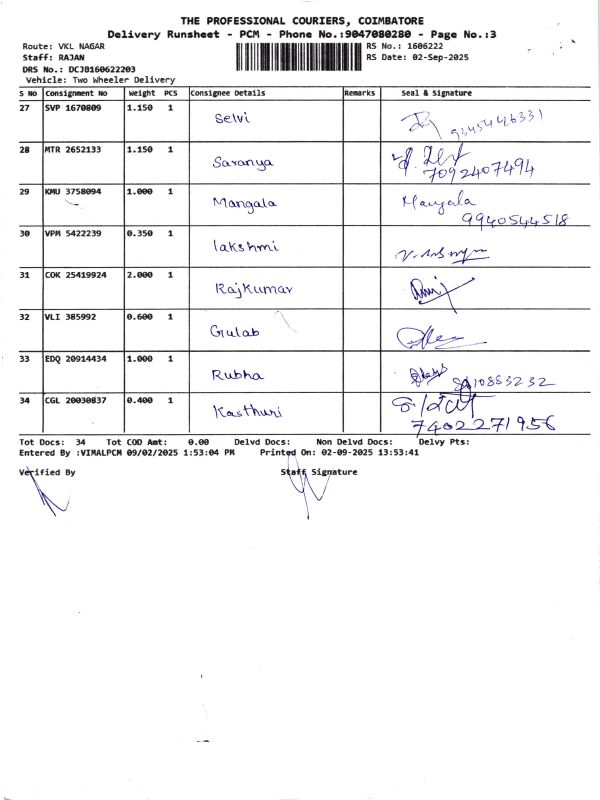 THE PROFESSIONAL COURIERS, COIMBATORE
Delivery Runsheet - PCM - Phone No.:9047080280 - Page No.:3
Route: VKL NAGAR RS No.: 1606222
Staff: RAJAN RS Date: 02-Sep-2025
DRS No.: DCJB160622203
Vehicle: Two Wheeler Delivery
S No Consignment No Weight PCS Consignee Details Remarks Seal & Signature
27 SVP 1670809 1.150 1 Selvi
28 MTR 2652133 1.150 1 Saranya
7092407494
29 KMU 3758094 1.000 1 Mangala Mangala
9940544518
30 VPM 5422239 0.350 1 lakshmi
31 COK 25419924 2.000 1 Rajkumar
32 VLI 385992 0.600 1 Gulab
33 EDQ 20914434 1.000 1 Rubha
34 CGL 20030837 0.400 1 Kasthuri
7402271956
Tot Docs: 34 Tot COD Amt: 0.00 Delvd Docs: Non Delvd Docs: Delvy Pts:
Entered By :VIMALPCM 09/02/2025 1:53:04 PM Printed On: 02-09-2025 13:53:41
Verified By Staff Signature